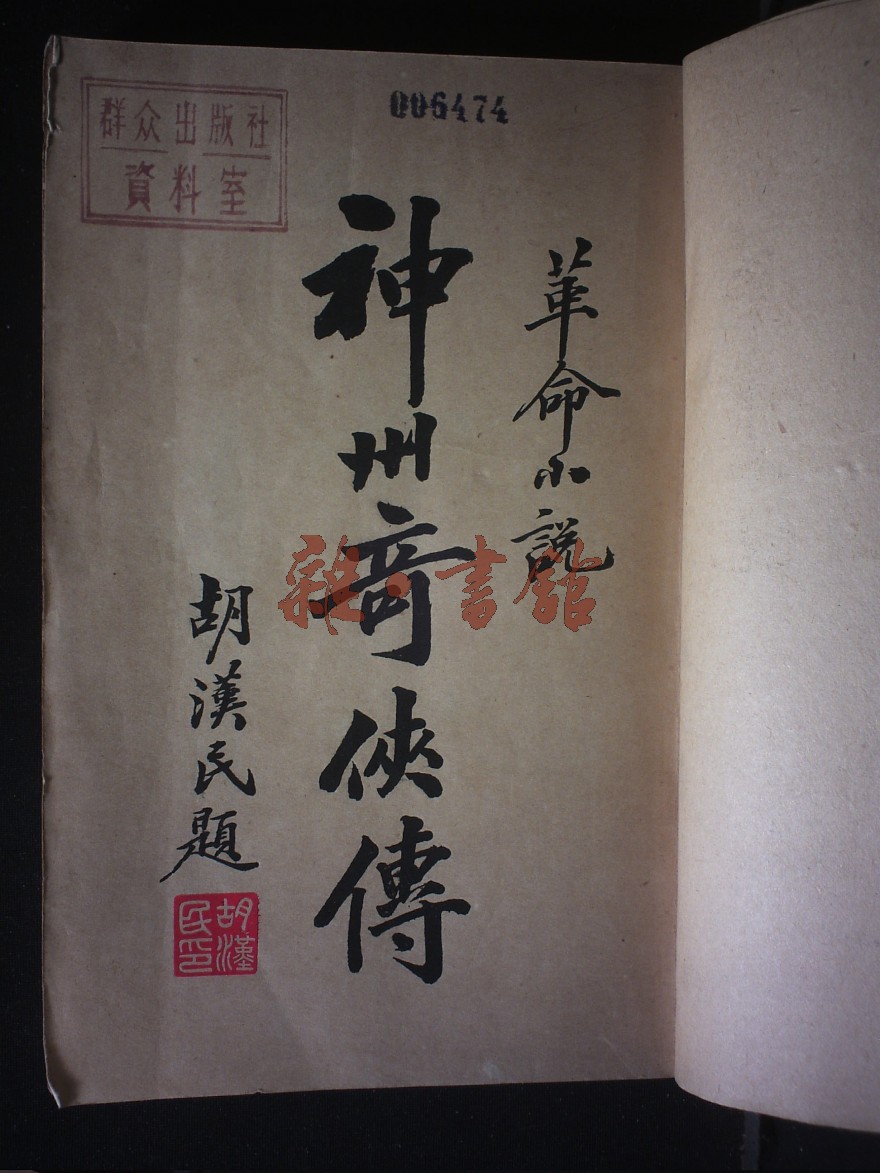 群众出版社
資料室
006474
革命小説
神州奇俠傳
胡漢民題
胡漢民印
雜·書館